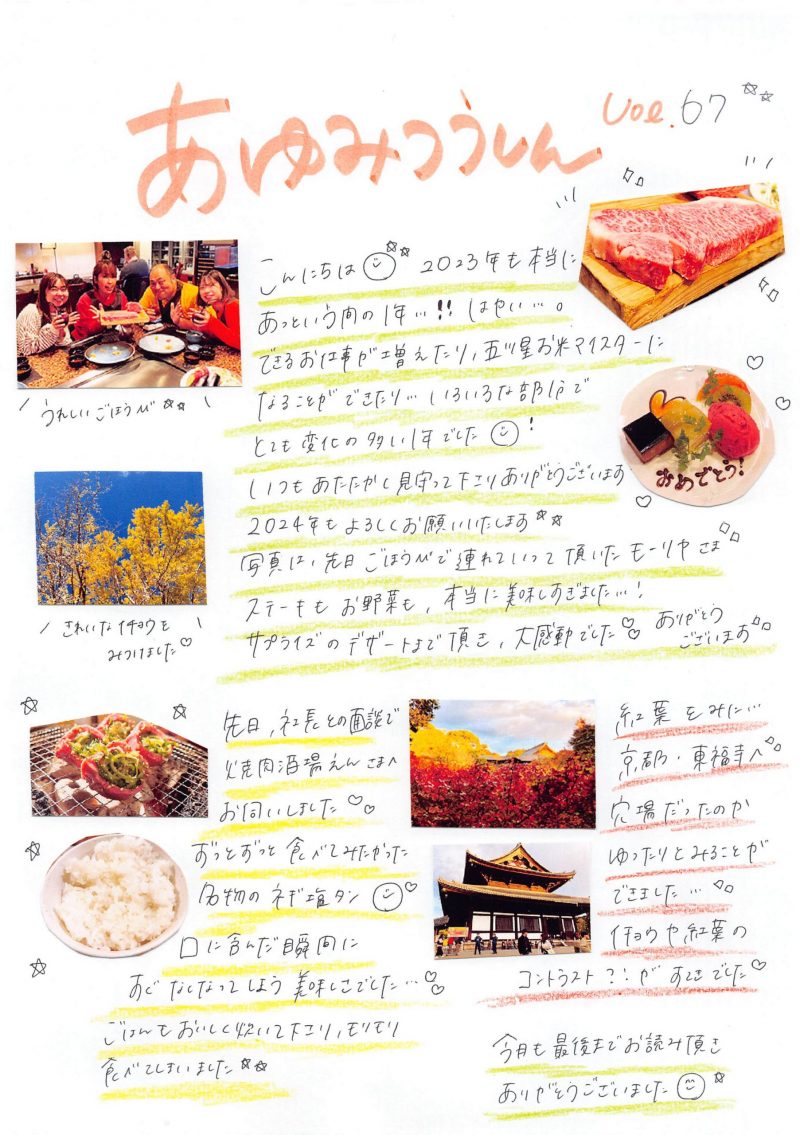 あゆみつうしん
Vol.67
こんにちは 2023年も本当に
あっという間の1年…!! はやい…。
できるお仕事が増えたり、五ツ星お米マイスターに
なることができたり… いろいろな部分で
とても変化の多い1年でした !
いつもあたたかく見守って下さりありがとうございます
2024年もよろしくお願いいたします
写真は、先日ごほうびで連れていって頂いたモーリヤさま
ステーキもお野菜も、本当に美味しすぎました…!
サプライズのデザートまで頂き、大感動でした♡
ありがとう
ございます
うれしいごほうび
おめでとう!
きれいなイチョウを
みつけました♡
先日、社長との面談で
焼肉酒場えんさまへ
お伺いしました♡
ずっとずっと食べてみたかった
名物のネギ塩タン
口に含んだ瞬間に
すぐなくなってしまう美味しさでした…♡
ごはんもおいしく炊いて下さり、モリモリ
食べてしまいました
紅葉をみに…
京都・東福寺へ
穴場だったのか
ゆったりとみることが
できました…
イチョウや紅葉の
コントラスト?!がすてきでした♡
今月も最後までお読み頂き
ありがとうございました